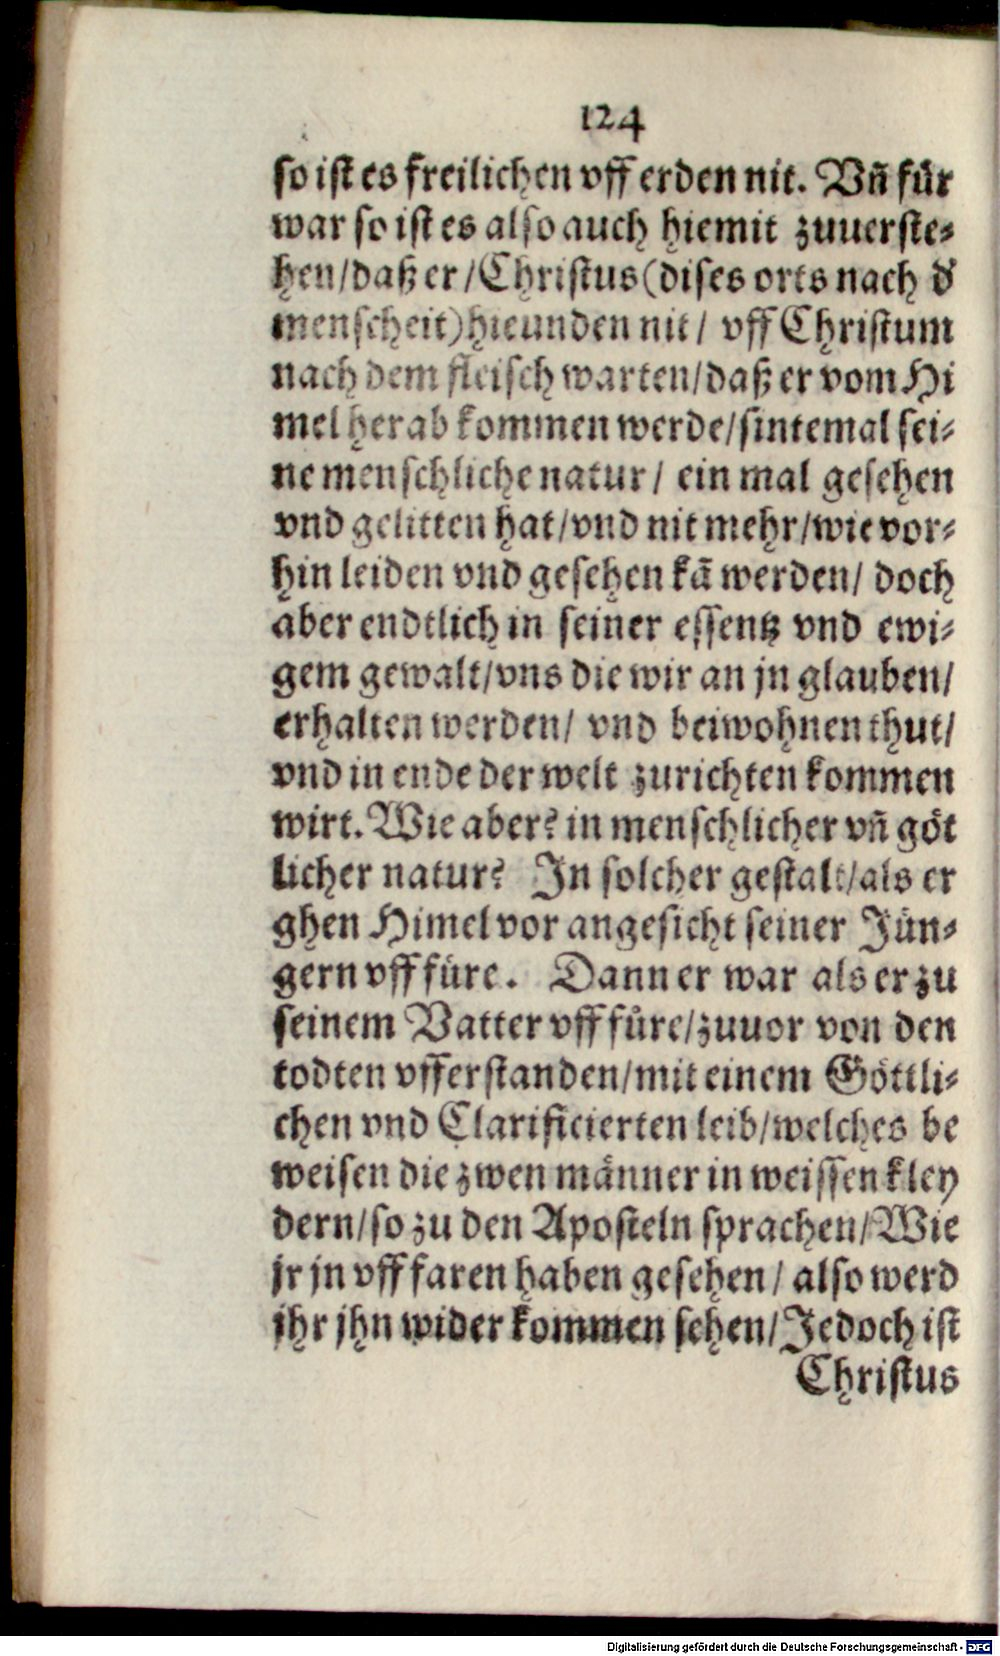 124
so ist es freilichen vff erden nit. Vñ für
war so ist es also auch hiemit zuuerste⸗
hen/daß er/Christus(dises orts nach d'
menscheit)hieunden nit/ vff Christum
nach dem fleisch warten/daß er vom Hi
mel herab kommen werde/sintemal sei⸗
ne menschliche natur/ ein mal gesehen
vnd gelitten hat/vnd nit mehr/wie vor⸗
hin leiden vnd gesehen kā werden/ doch
aber endtlich in seiner essentz vnd ewi⸗
gem gewalt/vns die wir an jn glauben/
erhalten werden/ vnd beiwohnen thut/
vnd in ende der welt zurichten kommen
wirt. Wie aber? in menschlicher vñ göt
licher natur? In solcher gestalt/als er
ghen Himel vor angesicht seiner Jün⸗
gern vff füre. Dann er war als er zu
seinem Vatter vff füre/zuuor von den
todten vfferstanden/mit einem Göttli⸗
chen vnd Clarificierten leib/welches be
weisen die zwen männer in weissen kley
dern/so zu den Aposteln sprachen/Wie
jr jn vff faren haben gesehen/ also werd
jhr jhn wider kommen sehen/Jedoch ist
Christus
Digitalisierung gefördert durch die Deutsche Forschungsgemeinschaft - DFG